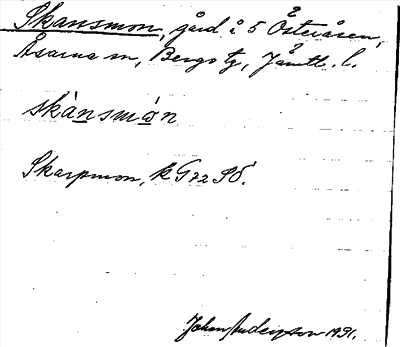 Skansmon, gård i 5 Österåsen,
Åsarna sn, Bergs tg, Jämtl. l.
skànsmɷ́n
Skarpmon, k G 72 SÖ.
Johan Anderson 1931.